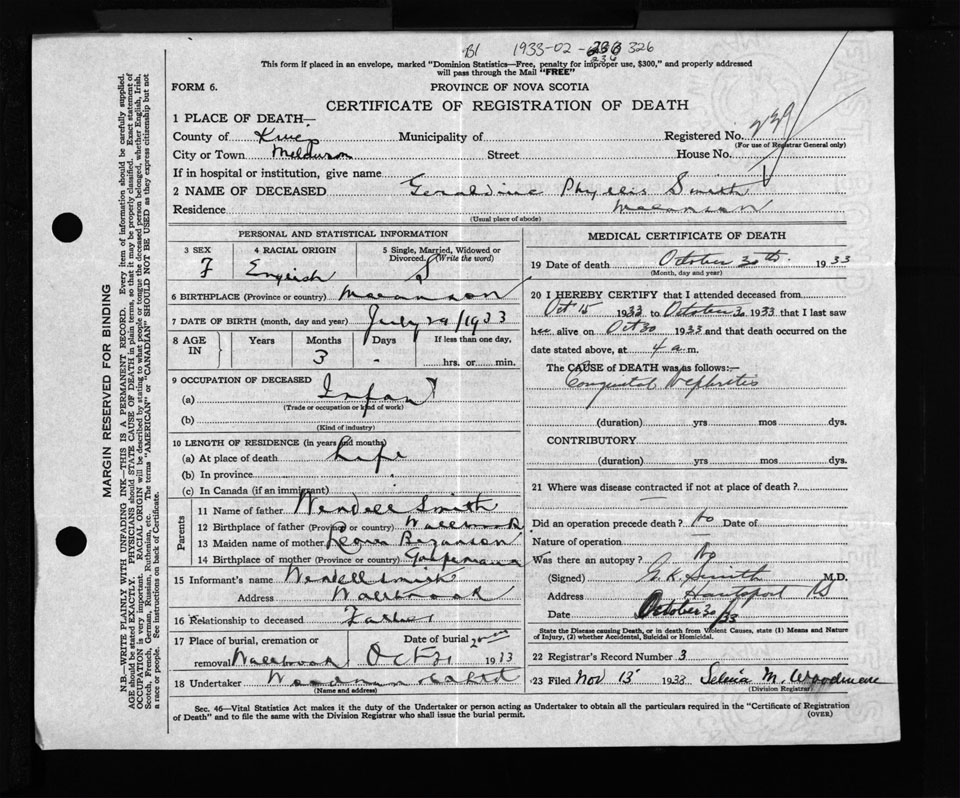 B1 1933-02- 326
236
This form if placed in an envelope, marked "Dominion Statistics—Free, penalty for improper use, $300," and properly addressed
will pass through the Mail "FREE"
FORM 6. PROVINCE OF NOVA SCOTIA
CERTIFICATE OF REGISTRATION OF DEATH
1 PLACE OF DEATH—
County of Municipality of Registered No. 239
(For use of Registrar General only)
City or Town Street House No.
If in hospital or institution, give name
2 NAME OF DECEASED Geraldine Phyllis Smith
Residence
(Usual place of abode)
PERSONAL AND STATISTICAL INFORMATION
3 SEX 4 RACIAL ORIGIN 5 Single, Married, Widowed or
Divorced. (Write the word)
F English S
6 BIRTHPLACE (Province or country)
7 DATE OF BIRTH (month, day and year) July 29/1933
8 AGE IN Years Months Days If less than one day,
3 - hrs. or min.
9 OCCUPATION OF DECEASED
(a) Infant
(Trade or occupation or kind of work)
(b)
(Kind of industry)
10 LENGTH OF RESIDENCE (in years and months)
(a) At place of death Life
(b) In province
(c) In Canada (if an immigrant)
Parents
11 Name of father Wendell Smith
12 Birthplace of father (Province or country) Wallbrook
13 Maiden name of mother
14 Birthplace of mother (Province or country)
15 Informant's name Wendell Smith
Address Wallbrook
16 Relationship to deceased Father
17 Place of burial, cremation or Date of burial
removal Wallbrook Oct 31 1933
18 Undertaker
(Name and address)
MEDICAL CERTIFICATE OF DEATH
19 Date of death October 30th. 1933
(Month, day and year)
20 I HEREBY CERTIFY that I attended deceased from
Oct 15 1933 to October 30 1933 that I last saw
her alive on Oct 30 1933 and that death occurred on the
date stated above, at 4 a.m.
The CAUSE of DEATH was as follows:—
Congenital Nephritis
(duration) yrs mos dys.
CONTRIBUTORY
(duration) yrs mos dys.
21 Where was disease contracted if not at place of death?
Did an operation precede death? No Date of
Nature of operation
Was there an autopsy? No
(Signed) G. K. Smith M.D.
Address Hantsport NS
Date October 30/33
State the Disease causing Death, or in death from Violent Causes, state (1) Means and Nature
of Injury, (2) whether Accidental, Suicidal or Homicidal.
22 Registrar's Record Number 3
23 Filed Nov 15 1933 Selina M. Woodmere
(Division Registrar)
Sec. 46—Vital Statistics Act makes it the duty of the Undertaker or person acting as Undertaker to obtain all the particulars required in the "Certificate of Registration
of Death" and to file the same with the Division Registrar who shall issue the burial permit. (OVER)
MARGIN RESERVED FOR BINDING
N.B.—WRITE PLAINLY WITH UNFADING INK—THIS IS A PERMANENT RECORD. Every item of information should be carefully supplied.
AGE should be stated EXACTLY. PHYSICIANS should STATE CAUSE OF DEATH in plain terms, so that it may be properly classified. Exact statement of
OCCUPATION is very important. RACIAL ORIGIN will be described by stating to what people or tongue the deceased person belonged, whether English, Irish,
Scotch, French, German, Russian, Ruthenian, etc. The terms "AMERICAN" or "CANADIAN" SHOULD NOT BE USED as they express citizenship but not
a race or people. See instructions on back of Certificate.